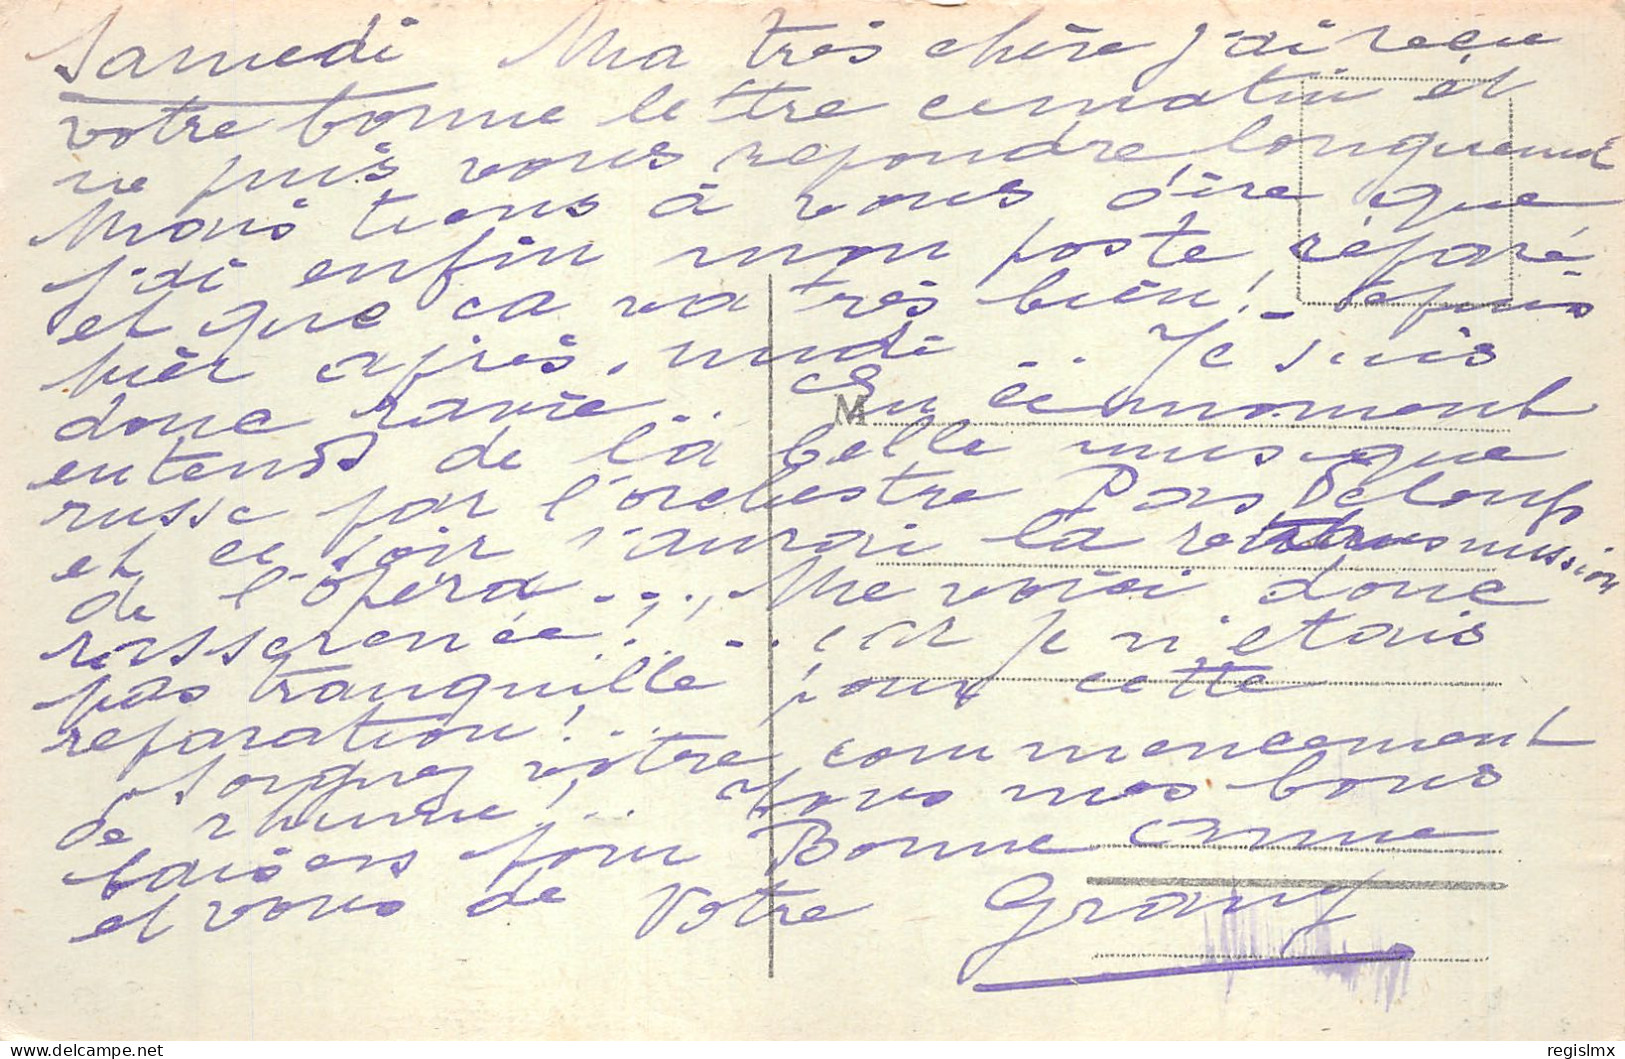 Samedi Ma très chère j'ai reçu
votre bonne lettre ce matin et
ne puis vous repondre longuement
Mais tiens à vous dire que
j'ai enfin mon poste réparé
et que ca va très bien! - depuis
hièr après-midi .. Je suis
donc ravie... En ce moment
entends de la belle musique
russe par l'orchestre Pas Deloup
et ce soir j'aurai la retransmission
de l'opéra..., Me voici donc
rasserenée!... car je n'etais
pas tranquille pour cette
reparation!...
Soignez votre commencement
de rhume!... Tous mes bons
baisers pour Bonne Anne
et vous de Votre Grany
M
© regislmx